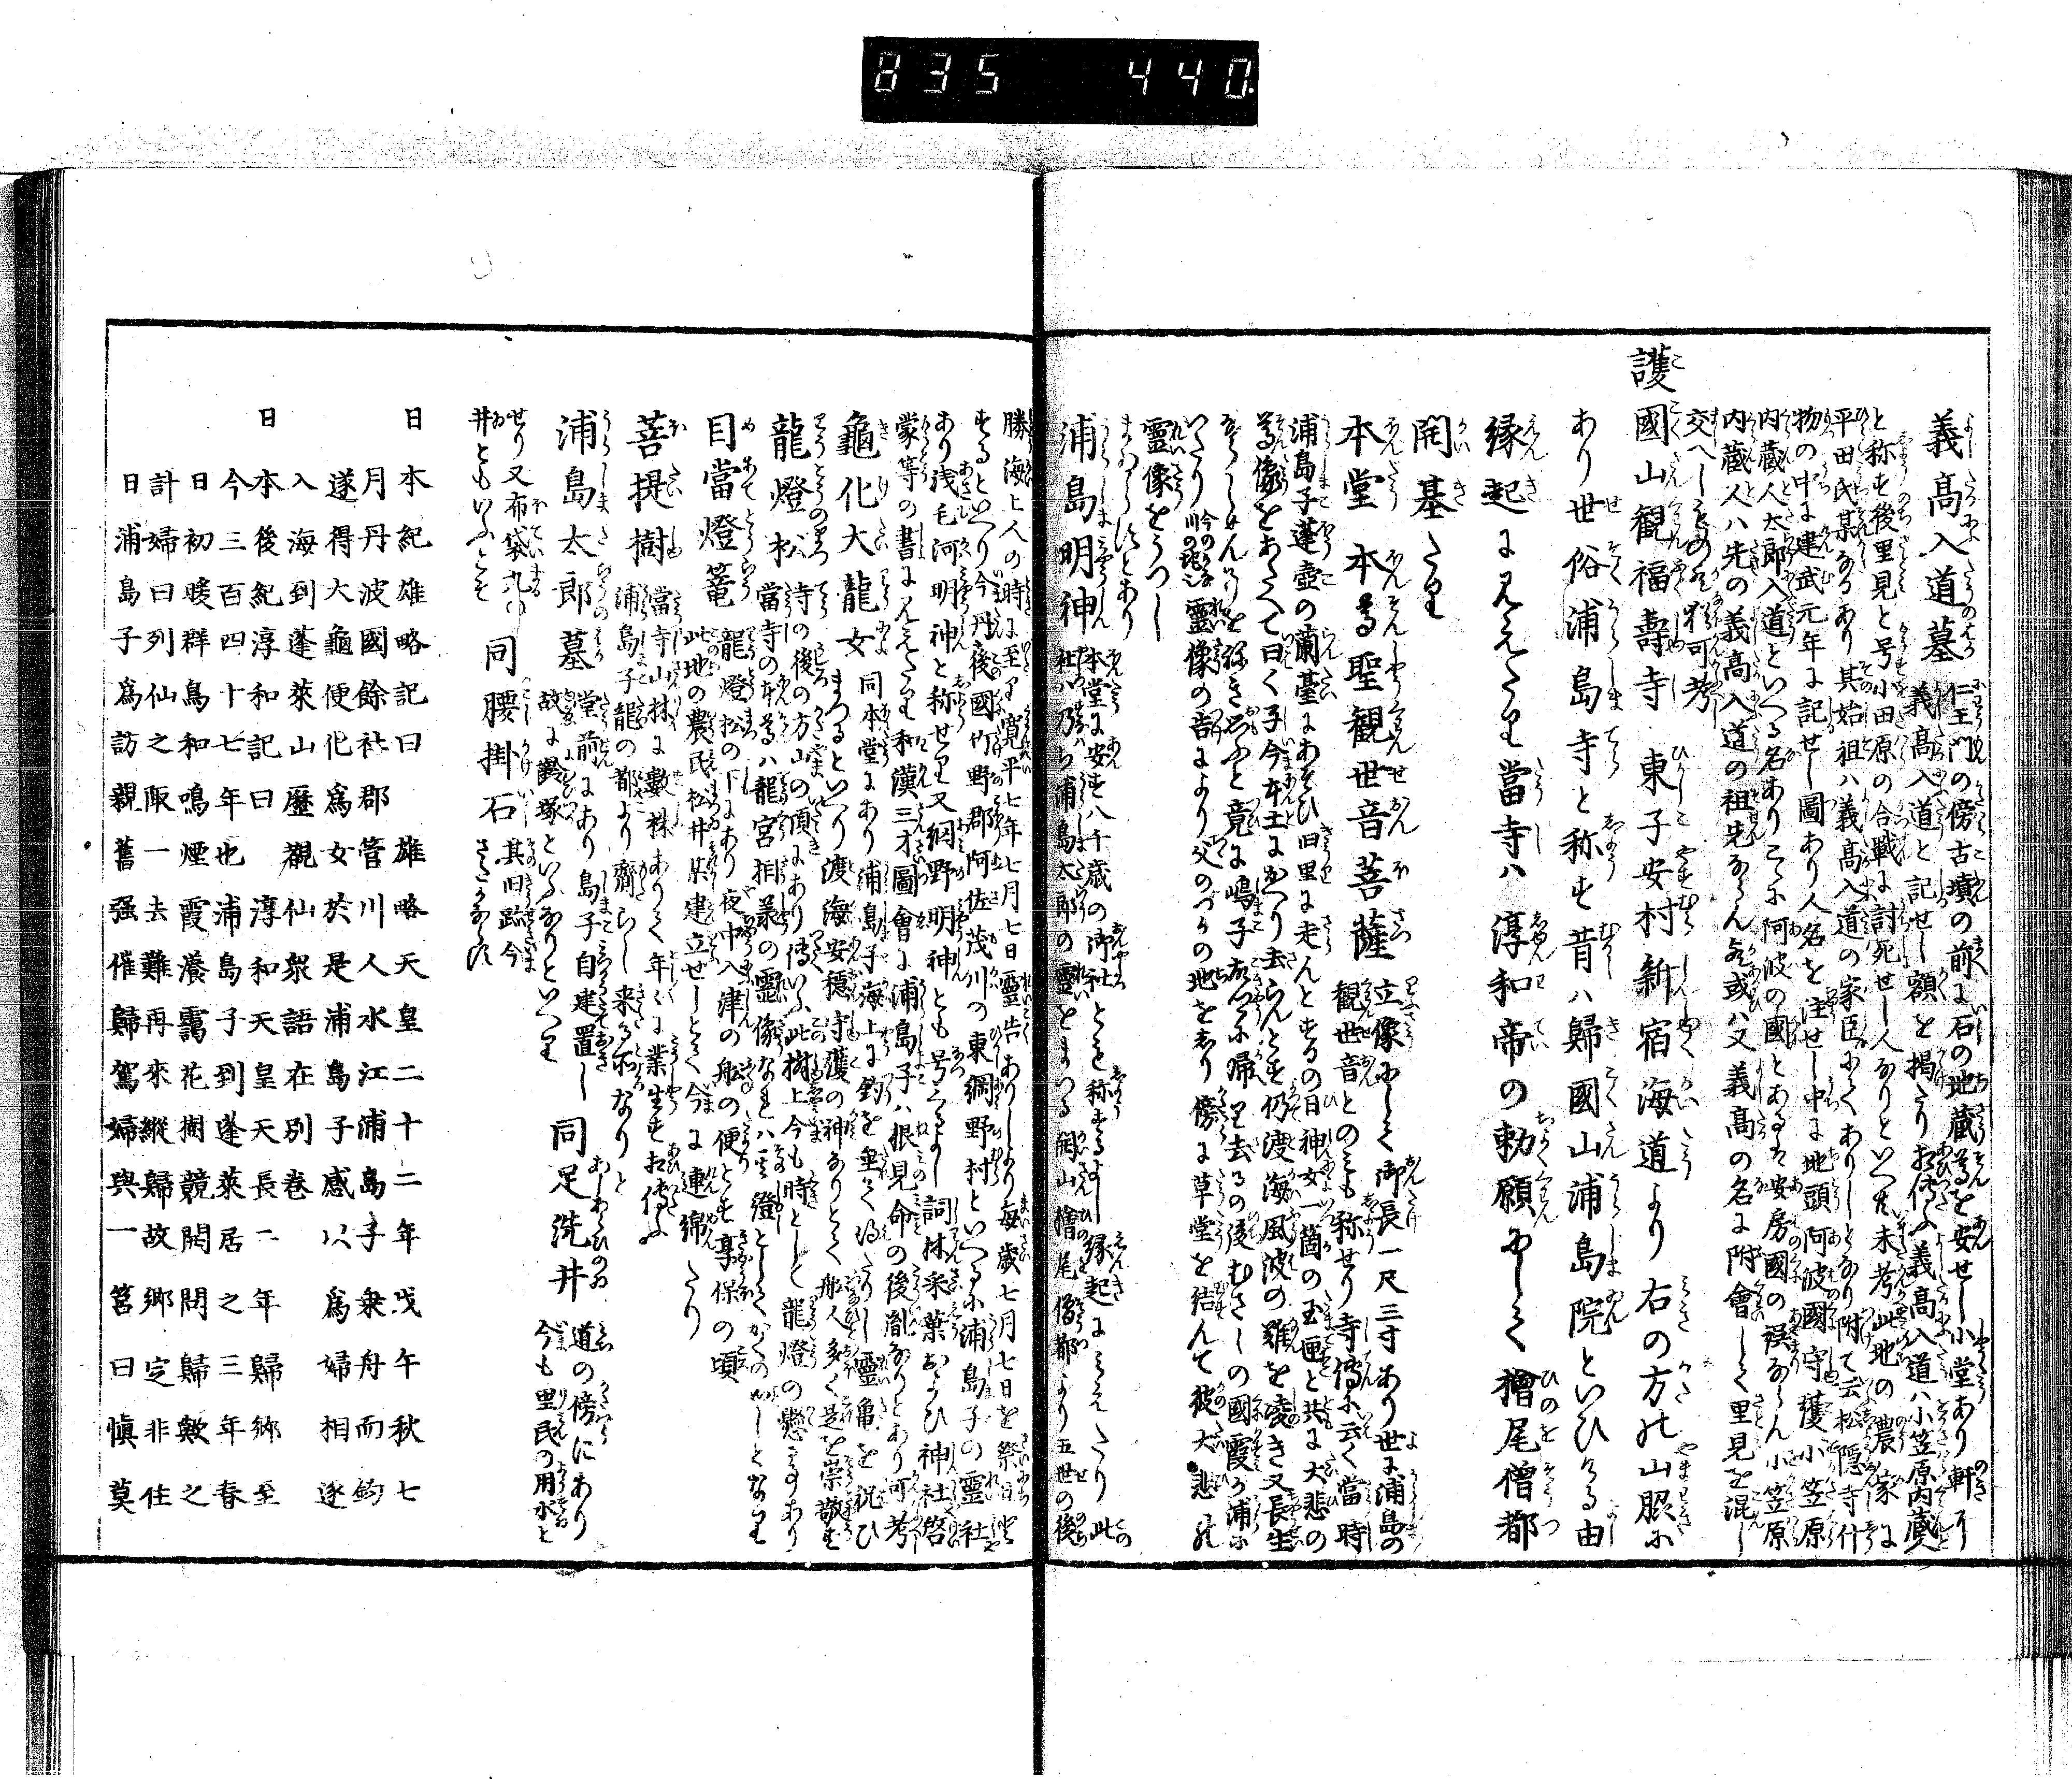 835 440
義高入道墓 仁王門の傍古墳の前に石の地蔵尊を安せし小堂あり軒に
義高入道と記せし額を掲たりお伝ふ義高入道ハ小笠原内蔵人
と称せ後里見と号小田原の合戦に討死せし人なりといへ共未考此地の農家に
平田氏某なるあり其始祖ハ義高入道の家臣にてありしとなり附て云松隠寺什
物の中に建武元年に記せし圖あり人名を注せし中に地頭阿波國守護小笠原
内蔵人太郎入道といへる名ありこゝに阿波の國とあるは安房國の誤ならん小笠原
内蔵人ハ先の義高入道の祖先ならん歟或ハ又義高の名に附會して里見を混し
交へしものか猶可考
護國山観福壽寺 東子安村新宿海道より右の方の山際に
あり世俗浦島寺と称す昔ハ歸國山浦島院といひける由
縁起にみえたり當寺ハ淳和帝の勅願にして檜尾僧都
開基たり
本堂 本尊聖観世音菩薩 立像にして御長一尺三寸あり世に浦島の
観世音とのミも称せり寺傳に云く當時
浦島子蓬壺の蘭臺にあそひ旧里に走んとするの日神女一箇の玉匣と共に大悲の
尊像をあたへて曰く子今本土にかへり去らんとせ仍渡海風波の難を凌き又長生
ならしめんことを祢き思ふと竟に嶋子故郷に帰り去るの後むさしの國霞か浦に
いたり 霊像の告により父のつかの地をしり傍に草堂を結んて彼大悲の
霊像をうつし
まゐらすとあり
浦島明神 本堂に安す八千歳の御社とも称するよし縁起にみえたり此
社ハ乃ち浦島太郎の霊をまつる開山檜尾僧都より五世の後
勝海上人の時に至り寛平七年七月七日霊告ありしより毎歳七月七日を祭日と
するといへり今丹後國竹野郡阿佐茂川の東網野村といへるに浦島子の霊社
あり浅毛河明神と称せり又網野明神とも号くるよし詞林采葉および神社啓
蒙等の書にみえたり和漢三才圖會に浦島子ハ根見命の後胤なりとあり可考
龜化大龍女 同本堂にあり浦島子海上に釣を垂て得たりし靈亀を祝ひ
まつるといへり渡海安穏守護の神なりとて船人多く是を崇敬す
龍燈松 寺の後の方山の頂にあり傳いふ此樹上今も時として龍燈の懸る事あり
當寺の本尊ハ龍宮相承の霊像なれハ其證としてかくのことしとなり
目當燈篭 龍燈松の下にあり夜中入津の船の便とす享保の頃
此地の農民松井某建立せしとて今に連綿たり
菩提樹 當寺山林に數株ありて年々に業生すお傳ふ
浦島子龍の都より齎らし来る所なりと
浦島太郎墓 堂前にあり島子自建置し
故に齡塚といふなりといへり
同足洗井 道の傍にあり
今も里民の用水と
せり又布袋丸の
井ともいふとそ
同腰掛石 其旧跡今
さたかならす
日本紀雄略記曰 雄略天皇二十二年戊午秋七
月丹波國餘社郡管川人水江浦島子乗舟而釣
遂得大龜便化爲女於是浦島子感以爲婦相逐
入海到蓬萊山歴覩仙衆語在別巻
日本後紀淳和記曰 淳和天皇天長二年歸郷至
今三百四十七年也浦島子到蓬萊居之三年春
日初暖群鳥和鳴煙霞瀁靄花樹競開問歸歟之
計婦曰列仙之陬一去難再來縱歸故郷定非住
日浦島子爲訪親舊强催歸駕婦與一筥曰愼莫